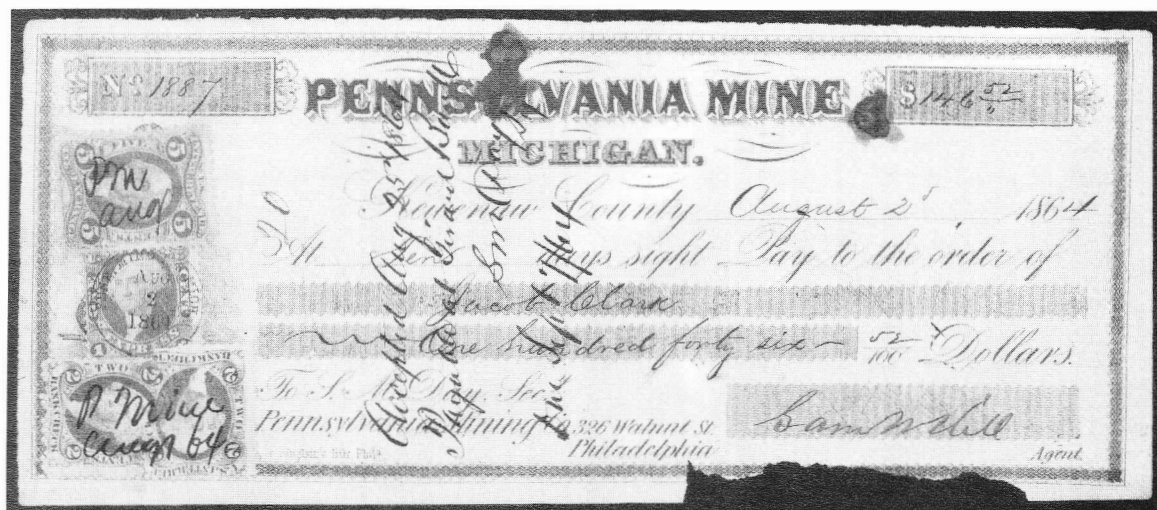 No 1887
PENNSYLVANIA MINE
$146 52
MICHIGAN.
Kewenaw County August 2d, 1864
At Ten days sight Pay to the order of
Jacob Clark
One hundred forty six 52/100 Dollars.
To S. M. Day, Sec.
Pennsylvania Mining Co 326 Walnut St.
Philadelphia
Sam W Hill
Agent.
Accepted Aug 25th 1864
Payable at Girard Bank
S M Day
Due Sept 7/64
5 FIVE 5
PM
aug
5 5
AUG
2
1864
TWO TWO
P Mine
aug 64
2 2